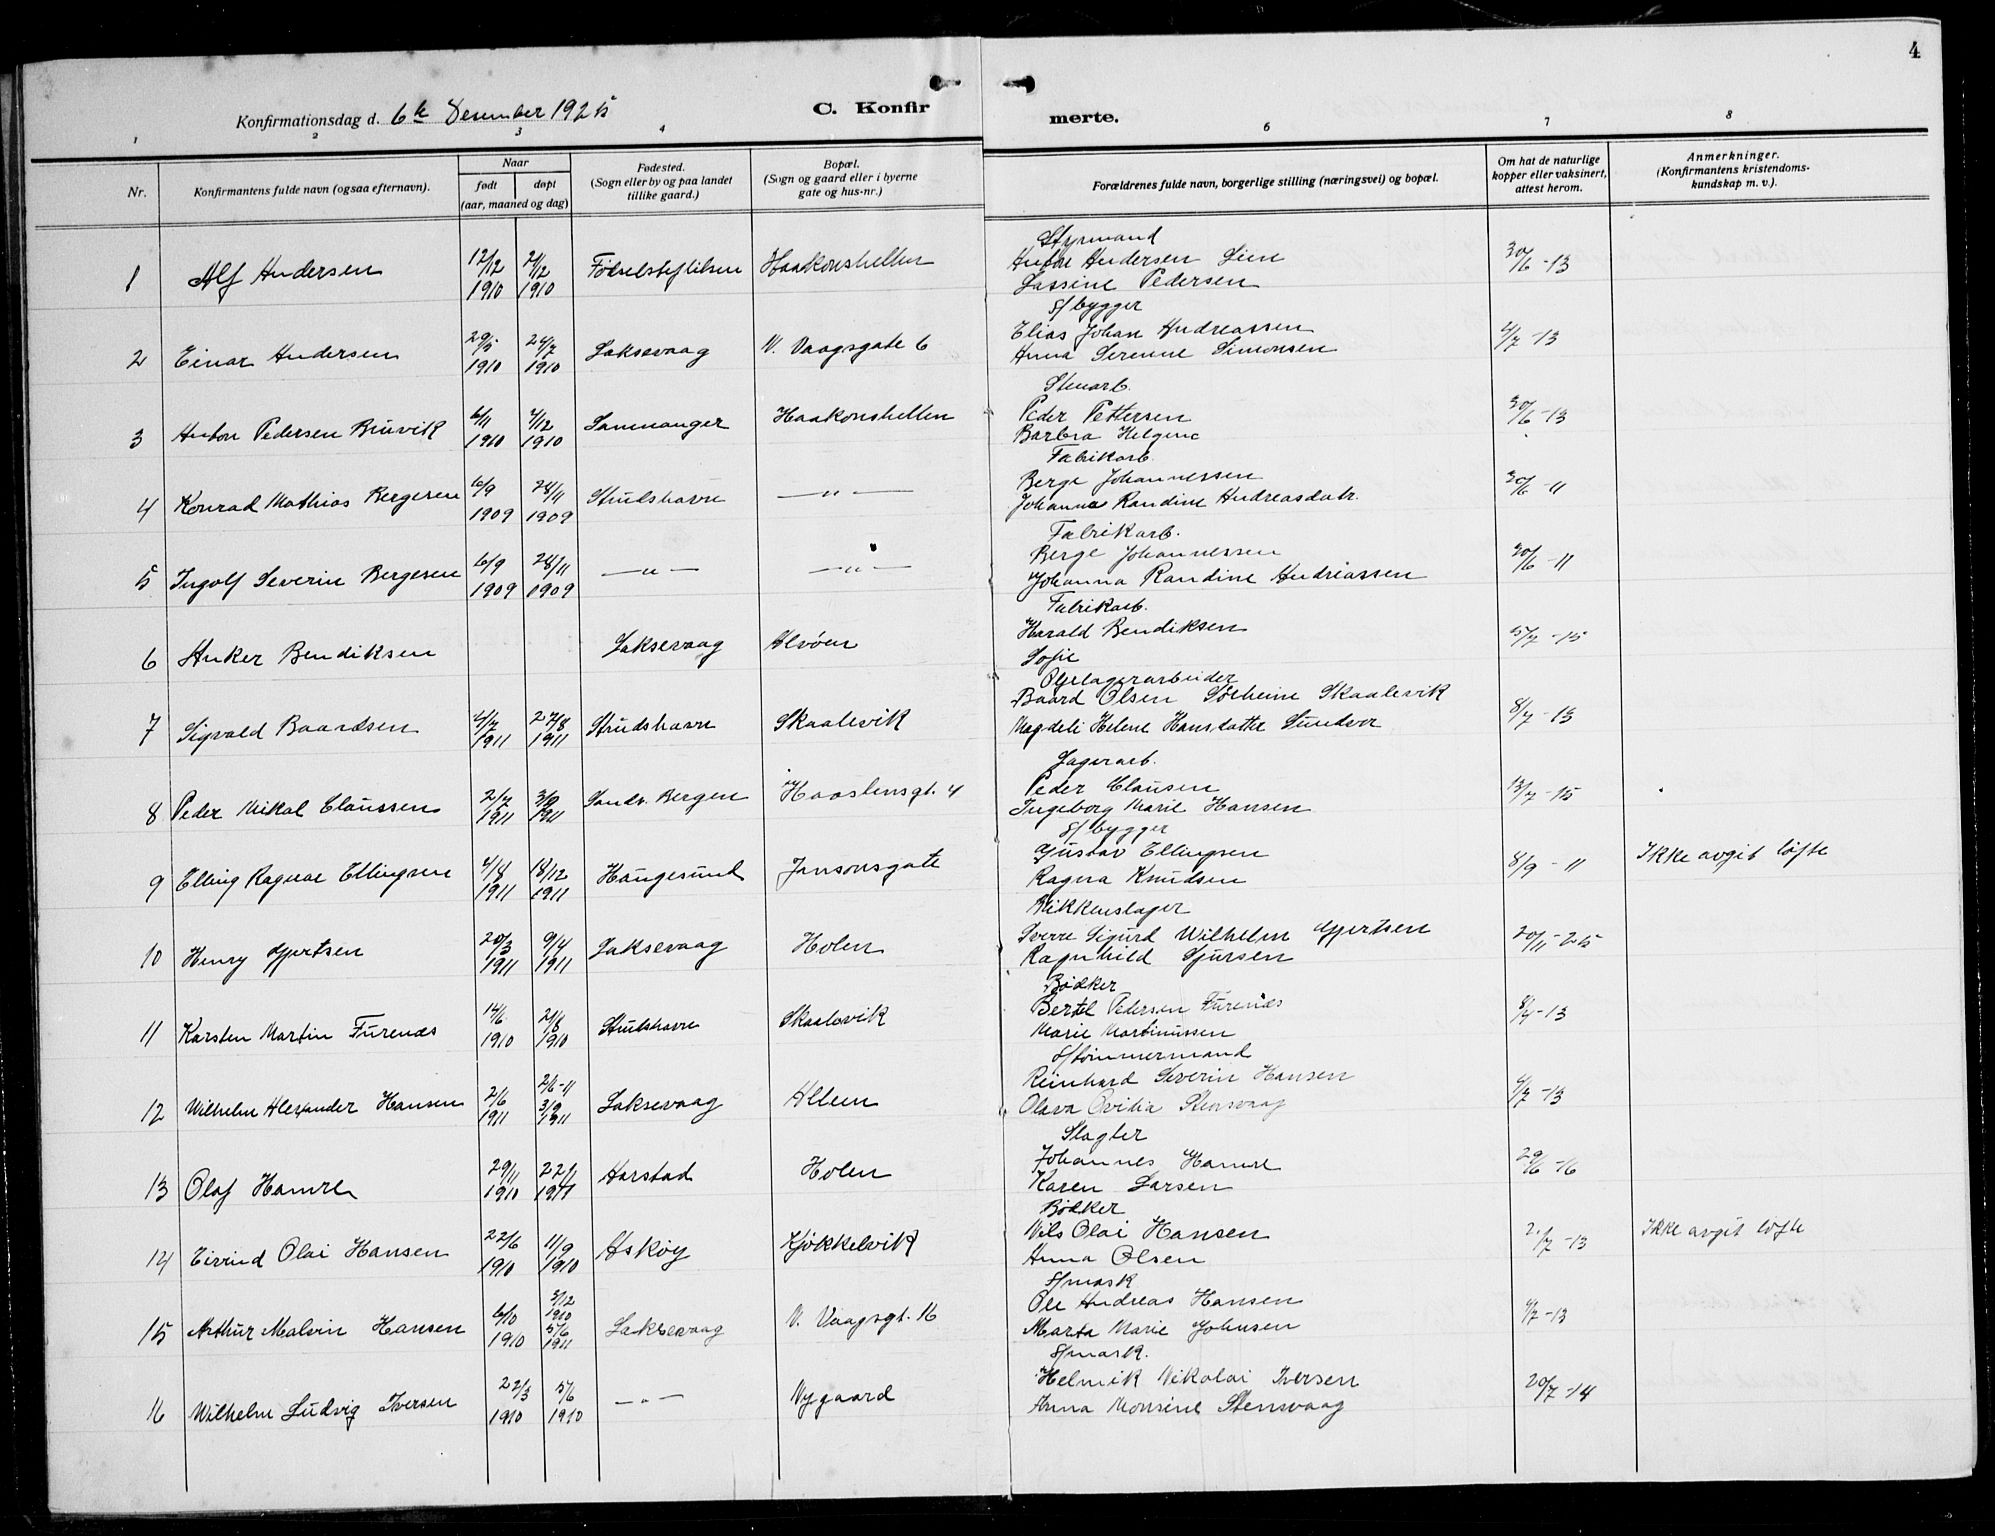 4
Konfirmationsdag d. 6te Desember 1925 C. Konfirmerte.
1 2 3 4 6 7 8
Nr. Konfirmantens fulde navn (ogsaa efternavn). Naar født døpt (aar, maaned og dag) Fødested. (Sogn eller by og paa landet tillike gaard.) Bopæl. (Sogn og gaard eller i byerne gate og hus-nr.) Forældrenes fulde navn, borgerlige stilling (næringsvei) og bopæl. Om hat de naturlige kopper eller vaksinert, attest herom. Anmerkninger. (Konfirmantens kristendoms-kundskap m. v.).
Styrmand
1 Alf Andersen 12/12 1910 1910 Fødselsstiftelsen Haakonshellen Andersen Lien 30/6 -13
Lassine Pedersen
S/bygger
2 Einar Andersen 1910 24/7 1910 Laksevaag N. Vaagsgate 6 Elias Johan Andreassen 4/7 -13
Anna Serenne Simonsen
Stenarb.
3 Anton Pedersen Bruvik 6/11 1910 4/12 1910 Samnanger Haakonshellen Peder Pettersen 30/6 -13
Barbra
Fabrikarb.
4 Konrad Mathias Bergesen 6/9 1909 28/11 1909 Strudshavn — " — Berge Johannessen 30/6 -11
Johanna Randine Andreasdatr.
Fabrikarb.
5 Ingolf Severin Bergesen 6/9 1909 28/11 1909 — " — — " — Berge Johannessen 30/6 -11
Johanna Randine Andreassen
Fabrikarb.
6 Anker Bendiksen Laksevaag Alvøen Harald Bendiksen 5/7 -15
Sofie
Oljelagerarbeider
7 Sigvald Baardsen 4/7 1911 27/8 1911 Strudshavn Skaalevik Baard Olsen Solheim Skaalevik 8/7 -13
Magdeli Helene Hansdatter Sundvor
Lagerarb.
8 Peder Mikal Claussen 2/7 1911 3/9 1911 Sandv. Bergen Haastensgt. 4 Peder Clausen 13/7 -15
Ingeborg Marie Hansen
S/bygger
9 Elling Ragnar Ellingsen 4/8 1911 18/12 1911 Haugesund Jansonsgate Gustav Ellingsen 8/9 - 11 Ikke avgit løfte
Ragna Knudsen
Blikkenslager
10 Henry Gjertsen 20/3 1911 9/4 1911 Laksevaag Holen Sverre Sigurd Wilhelm Gjertsen 20/11 -25
Ragnhild Sjursen
Bødker
11 Karsten Martin Furenæs 14/6 1910 21/8 1910 Strudshavn Skaalevik Bertel Pedersen Furenæs 8/7 -13
Marie Martinussen
S/tømmermand
12 Wilhelm Alexander Hansen 2/6 1911 2/6-11 3/9 1911 Laksevaag Alleen Reinhard Severin Hansen 4/7 -13
Olava Ovidia Stensvaag
Slagter
13 Olaf Hamre 29/11 1910 22/1 1911 Harstad Holen Johannes Hamre 29/6 -16
Karen Larsen
Bødker
14 Eivind Olai Hansen 22/6 1910 11/9 1910 Askøy Kjøkkelvik Nils Olai Hansen 2/7 -13 Ikke avgit løfte
Anna Olsen
S/mask
15 Arthur Malvin Hansen 6/10 1910 3/12 1910 5/6 1911 Laksevaag N. Vaagsgt. 16 Ole Andreas Hansen 4/7 -13
Marta Marie Johnsen
S/mask.
16 Wilhelm Ludvig Iversen 22/3 1910 5/6 1910 — " — Nygaard Helmik Nikolai Iversen 20/7 -14
Anna Monsine Stensvaag